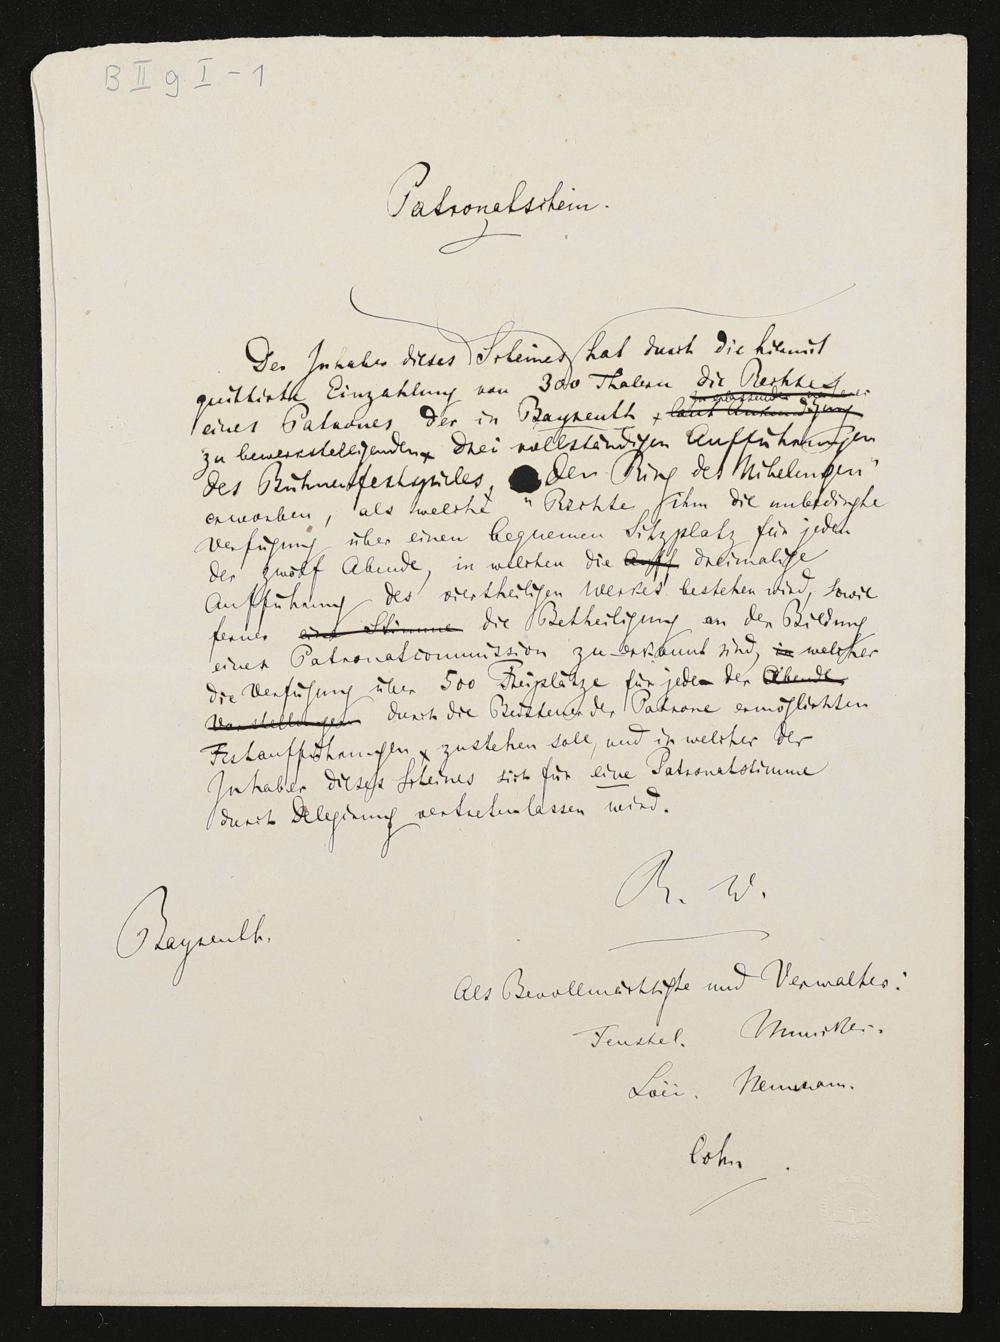 B II g I - 1
Patronatschein.
Der Inhaber dieses Scheines hat durch die hiermit
quittirte Einzahlung von 300 Thalern die Rechte
eines Patrones der in Bayreuth laut Ankündigung
zu bewerkstelligenden drei vollständigen Aufführungen
des Bühnenfestspieles, "Der Ring des Nibelungen"
erworben, als welche Rechte ihm die unbedingte
Verfügung über einen bequemen Sitzplatz für jeden
der zwölf Abende, in welchen die Auff dreimalige
Aufführung des viertheiligen Werkes bestehen wird, sowie
ferner eine Stimme die Betheiligung an der Bildung
einer Patronatcommission zu erkannt sind, in welcher
die Verfügung über 500 Freiplätze für jede der Abende
Vorstellungen durch die Beisteuer der Patrone ermöglichten
Festaufführungen zustehen soll, und in welcher der
Inhaber dieses Scheines sich für eine Patronatstimme
durch Delegirung vertreten lassen wird.
R. W.
Bayreuth.
Als Bevollmächtigte und Verwalter:
Feustel. Muncker.
Loën. Neumann.
Cohn.